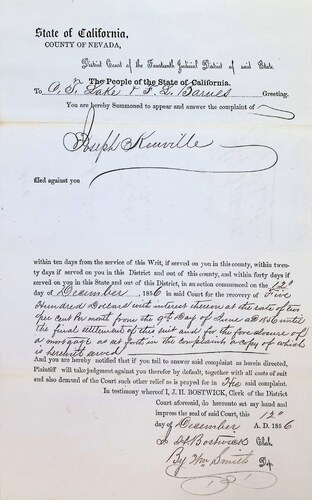 State of California,
COUNTY OF NEVADA,
District Court of the Fourteenth Judicial District of said State
The People of the State of California.
To O. T. Lake & F. L. Barnes Greeting.
You are hereby Summoned to appear and answer the complaint of
Joseph Kenville
filed against you
within ten days from the service of this Writ, if served on you in this county, within twen-
ty days if served on you in this District and out of this county, and within forty days if
served on you in this State and out of this District, in an action commenced on the 12th
day of December, 1856 in said Court for the recovery of Five
Hundred Dollars with interest thereon at the rate of two
per cent Per month from the 9th Day of June AD 1856 until
the final settlement of this suit and for the foreclosure of
a mortgage as set forth in the complaint a copy of which
is herewith served
And you are hereby notified that if you fail to answer said complaint as herein directed,
Plaintiff will take judgment against you therefor by default, together with all costs of suit
and also demand of the Court such other relief as is prayed for in The said complaint.
In testimony whereof I, J. H. BOSTWICK, Clerk of the District
Court aforesaid, do hereunto set my hand and
impress the seal of said Court, this 12th
day of December A. D. 1856
J H Bostwick Clerk
By Wm Smith Dep